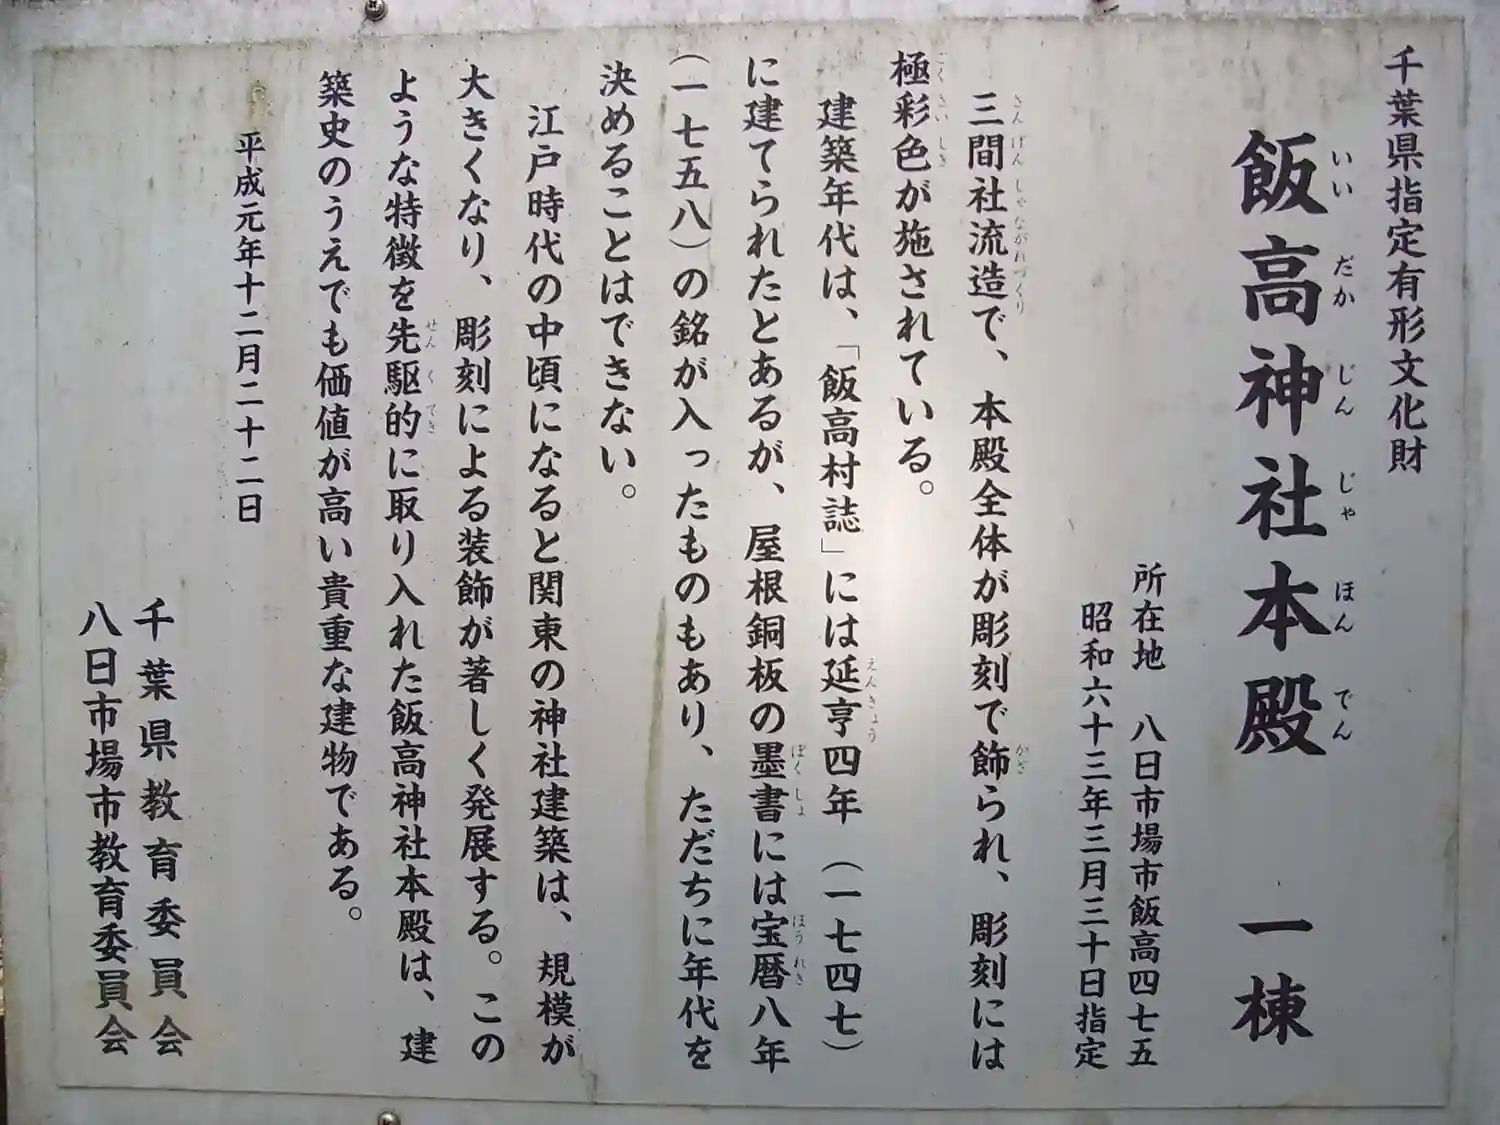 千葉県指定有形文化財
飯高神社本殿 一棟
いいだかじんじゃほんでん
所在地 八日市場市飯高四七五
昭和六十三年三月三十日指定
三間社流造で、本殿全体が彫刻で飾られ、彫刻には
極彩色が施されている。
建築年代は、「飯高村誌」には延亨四年(一七四七)
に建てられたとあるが、屋根銅板の墨書には宝暦八年
(一七五八)の銘が入ったものもあり、ただちに年代を
決めることはできない。
江戸時代の中頃になると関東の神社建築は、規模が
大きくなり、彫刻による装飾が著しく発展する。この
ような特徴を先駆的に取り入れた飯高神社本殿は、建
築史のうえでも価値が高い貴重な建物である。
平成元年十二月二十二日
千葉県教育委員会
八日市場市教育委員会